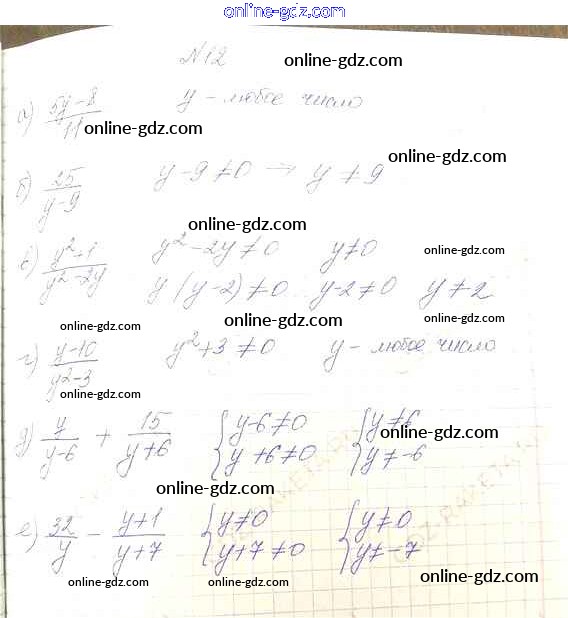 online-gdz.com
№12 online-gdz.com
а) (5y-8)/11 y - любое число
online-gdz.com
online-gdz.com
б) 25/(y-9) y-9≠0 → y≠9
online-gdz.com
в) (y²+1)/(y²-2y) y²-2y≠0 y≠0 online-gdz.com
y(y-2)≠0 y-2≠0 y≠2
online-gdz.com online-gdz.com online-gdz.com
г) (y-10)/(y²-3) y²+3≠0 y - любое число
online-gdz.com
д) y/(y-6) + 15/(y+6) { y-6≠0 { y≠6
y+6≠0 y≠-6
online-gdz.com
online-gdz.com
е) 32/y - (y+1)/(y+7) { y≠0 { y≠0
y+7≠0 y≠-7
online-gdz.com online-gdz.com online-gdz.com